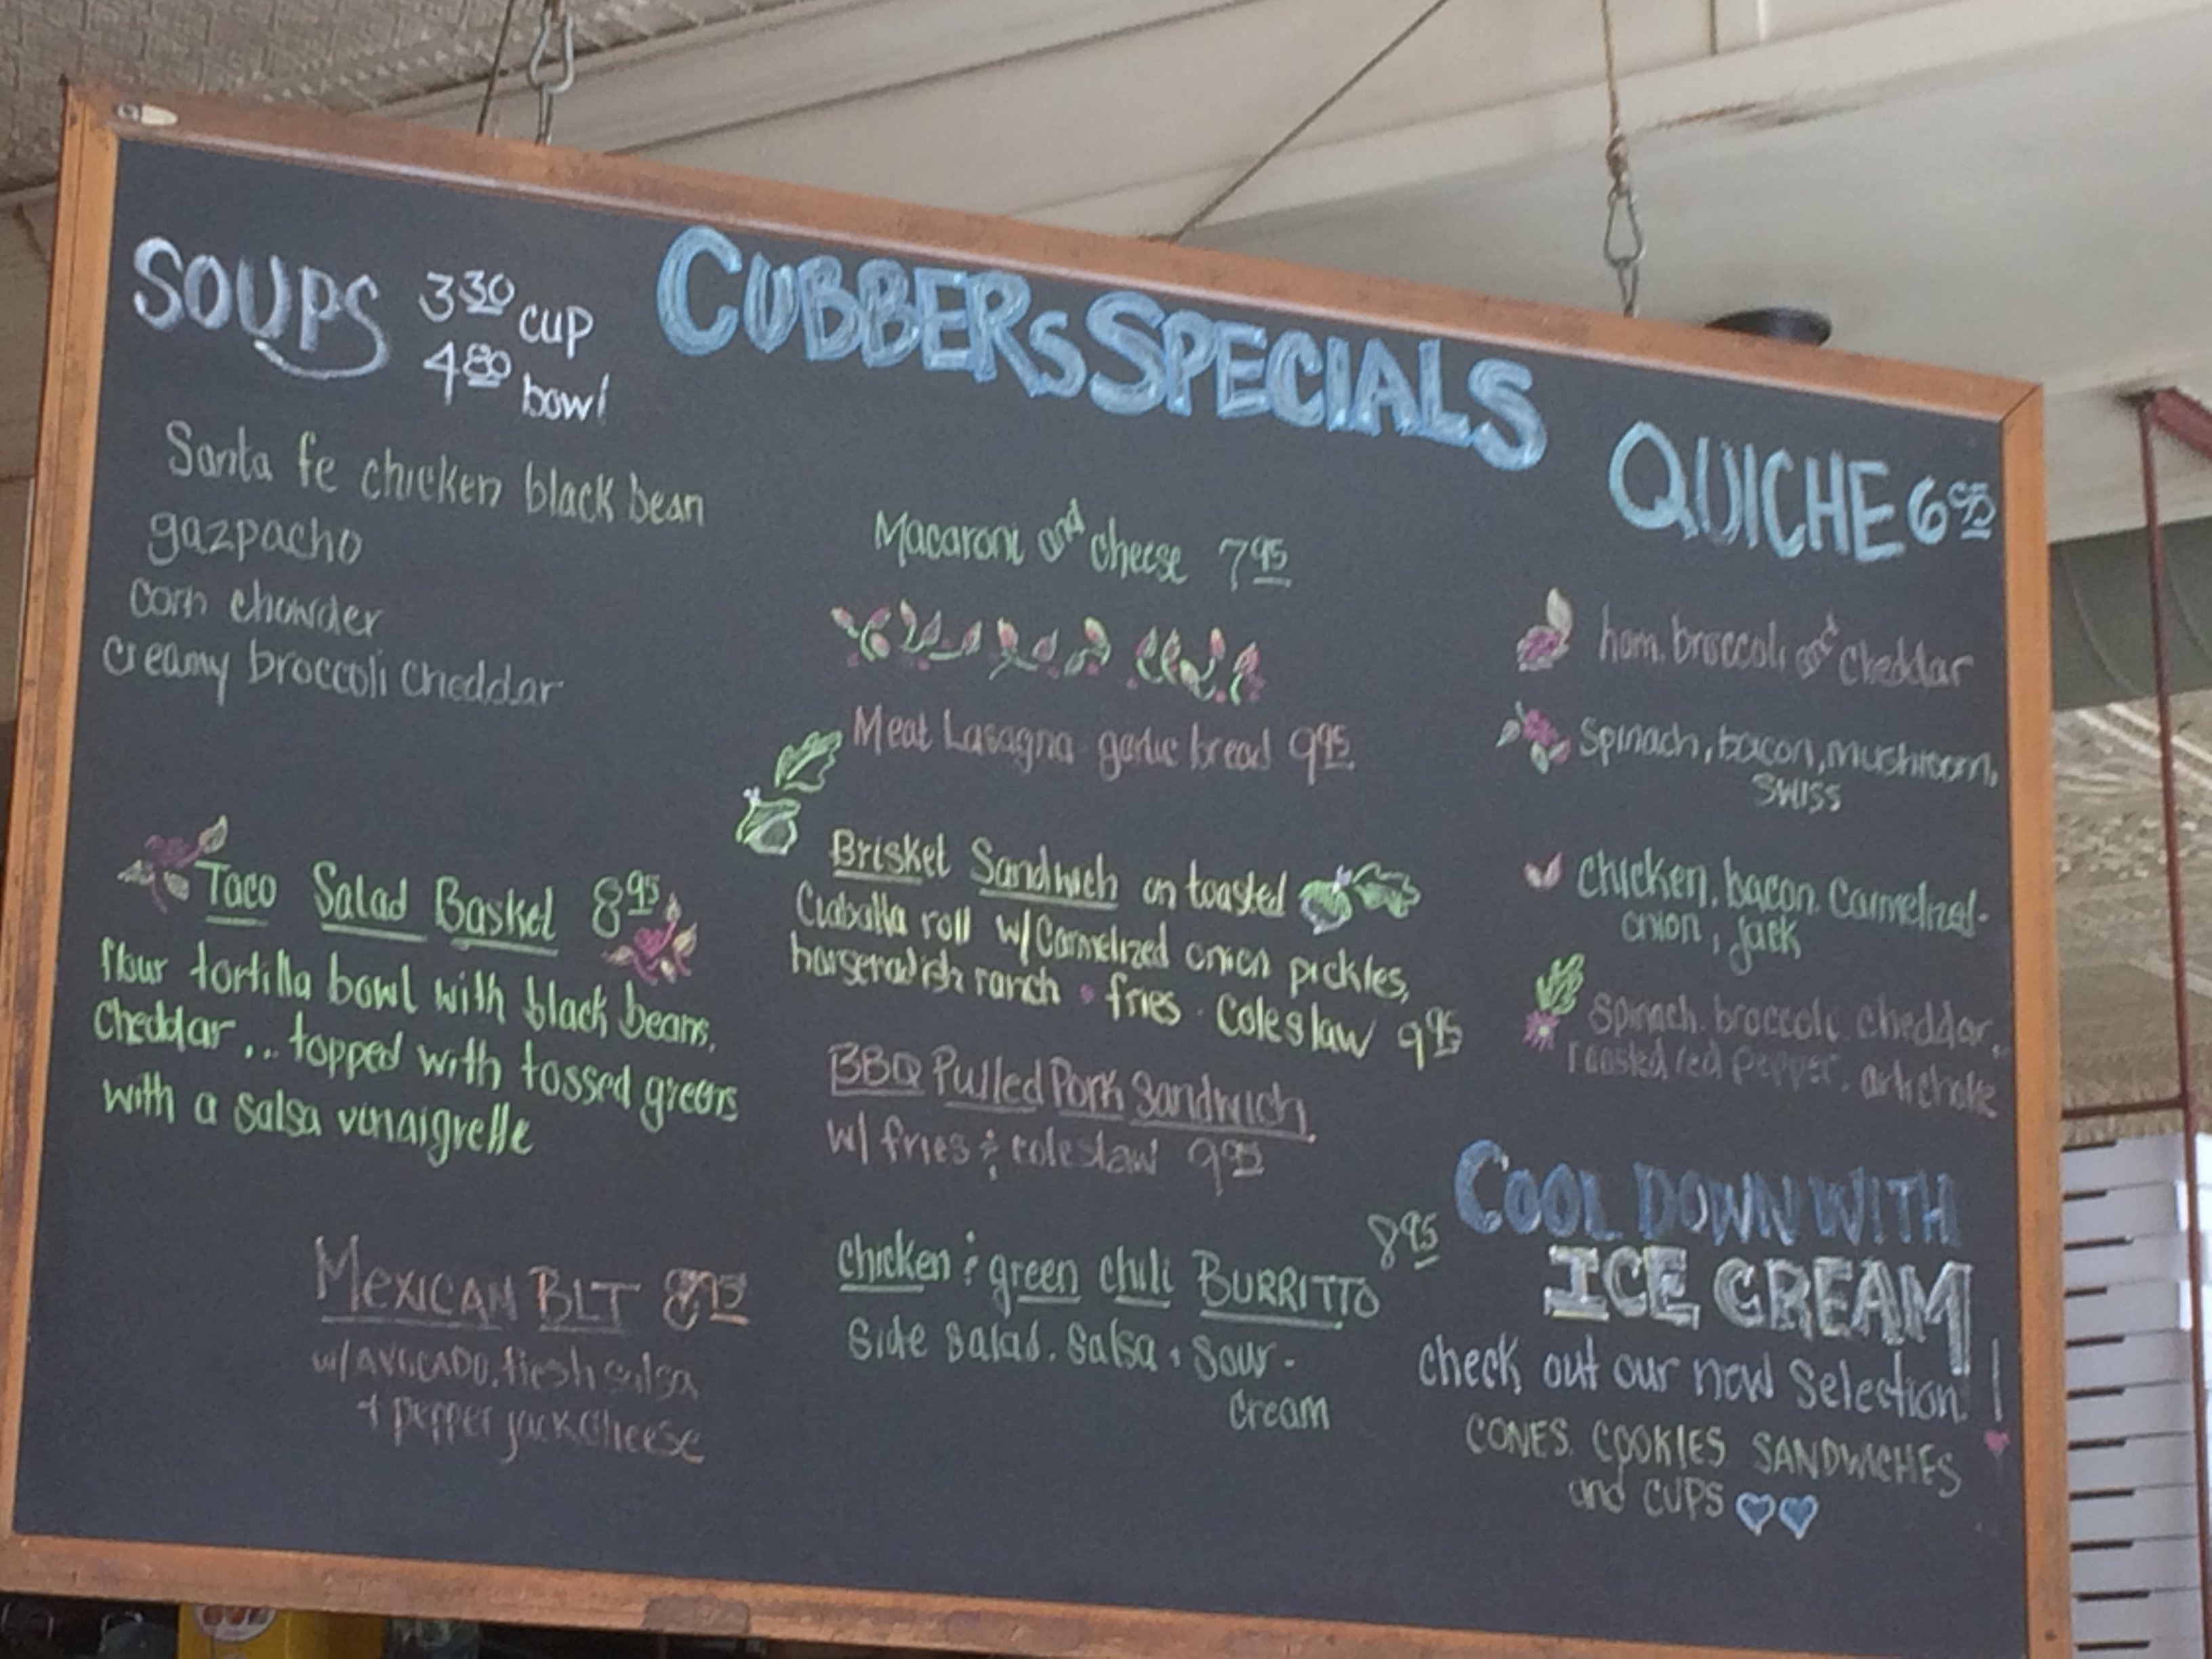 SOUPS 3.30 cup
4.80 bowl
Santa fe chicken black bean
gazpacho
corn chowder
creamy broccoli cheddar
Taco Salad Basket 8.95
flour tortilla bowl with black beans,
Cheddar... topped with tossed greens
with a salsa vinaigrette
MEXICAN BLT 8.95
w/ AVOCADO, fresh salsa
+ pepper jack cheese
CUBBERS SPECIALS
Macaroni and cheese 7.95
Meat Lasagna garlic bread 9.95
Brisket Sandwich on toasted
Ciabatta roll w/ Carmelized onion pickles,
horseradish ranch • fries · Coleslaw 9.95
BBQ Pulled Pork Sandwich
w/ fries & coleslaw 9.95
Chicken & green chili BURRITTO 8.95
Side salad. Salsa · Sour-
Cream
QUICHE 6.95
ham. broccoli and cheddar
Spinach, bacon, mushroom,
SWISS
chicken. bacon. Carmelized-
onion, jack
spinach. broccoli cheddar,
roasted red pepper. artichoke
COOL DOWN WITH
ICE CREAM!
check out our new selection!
CONES. COOKIES SANDWICHES
and CUPS